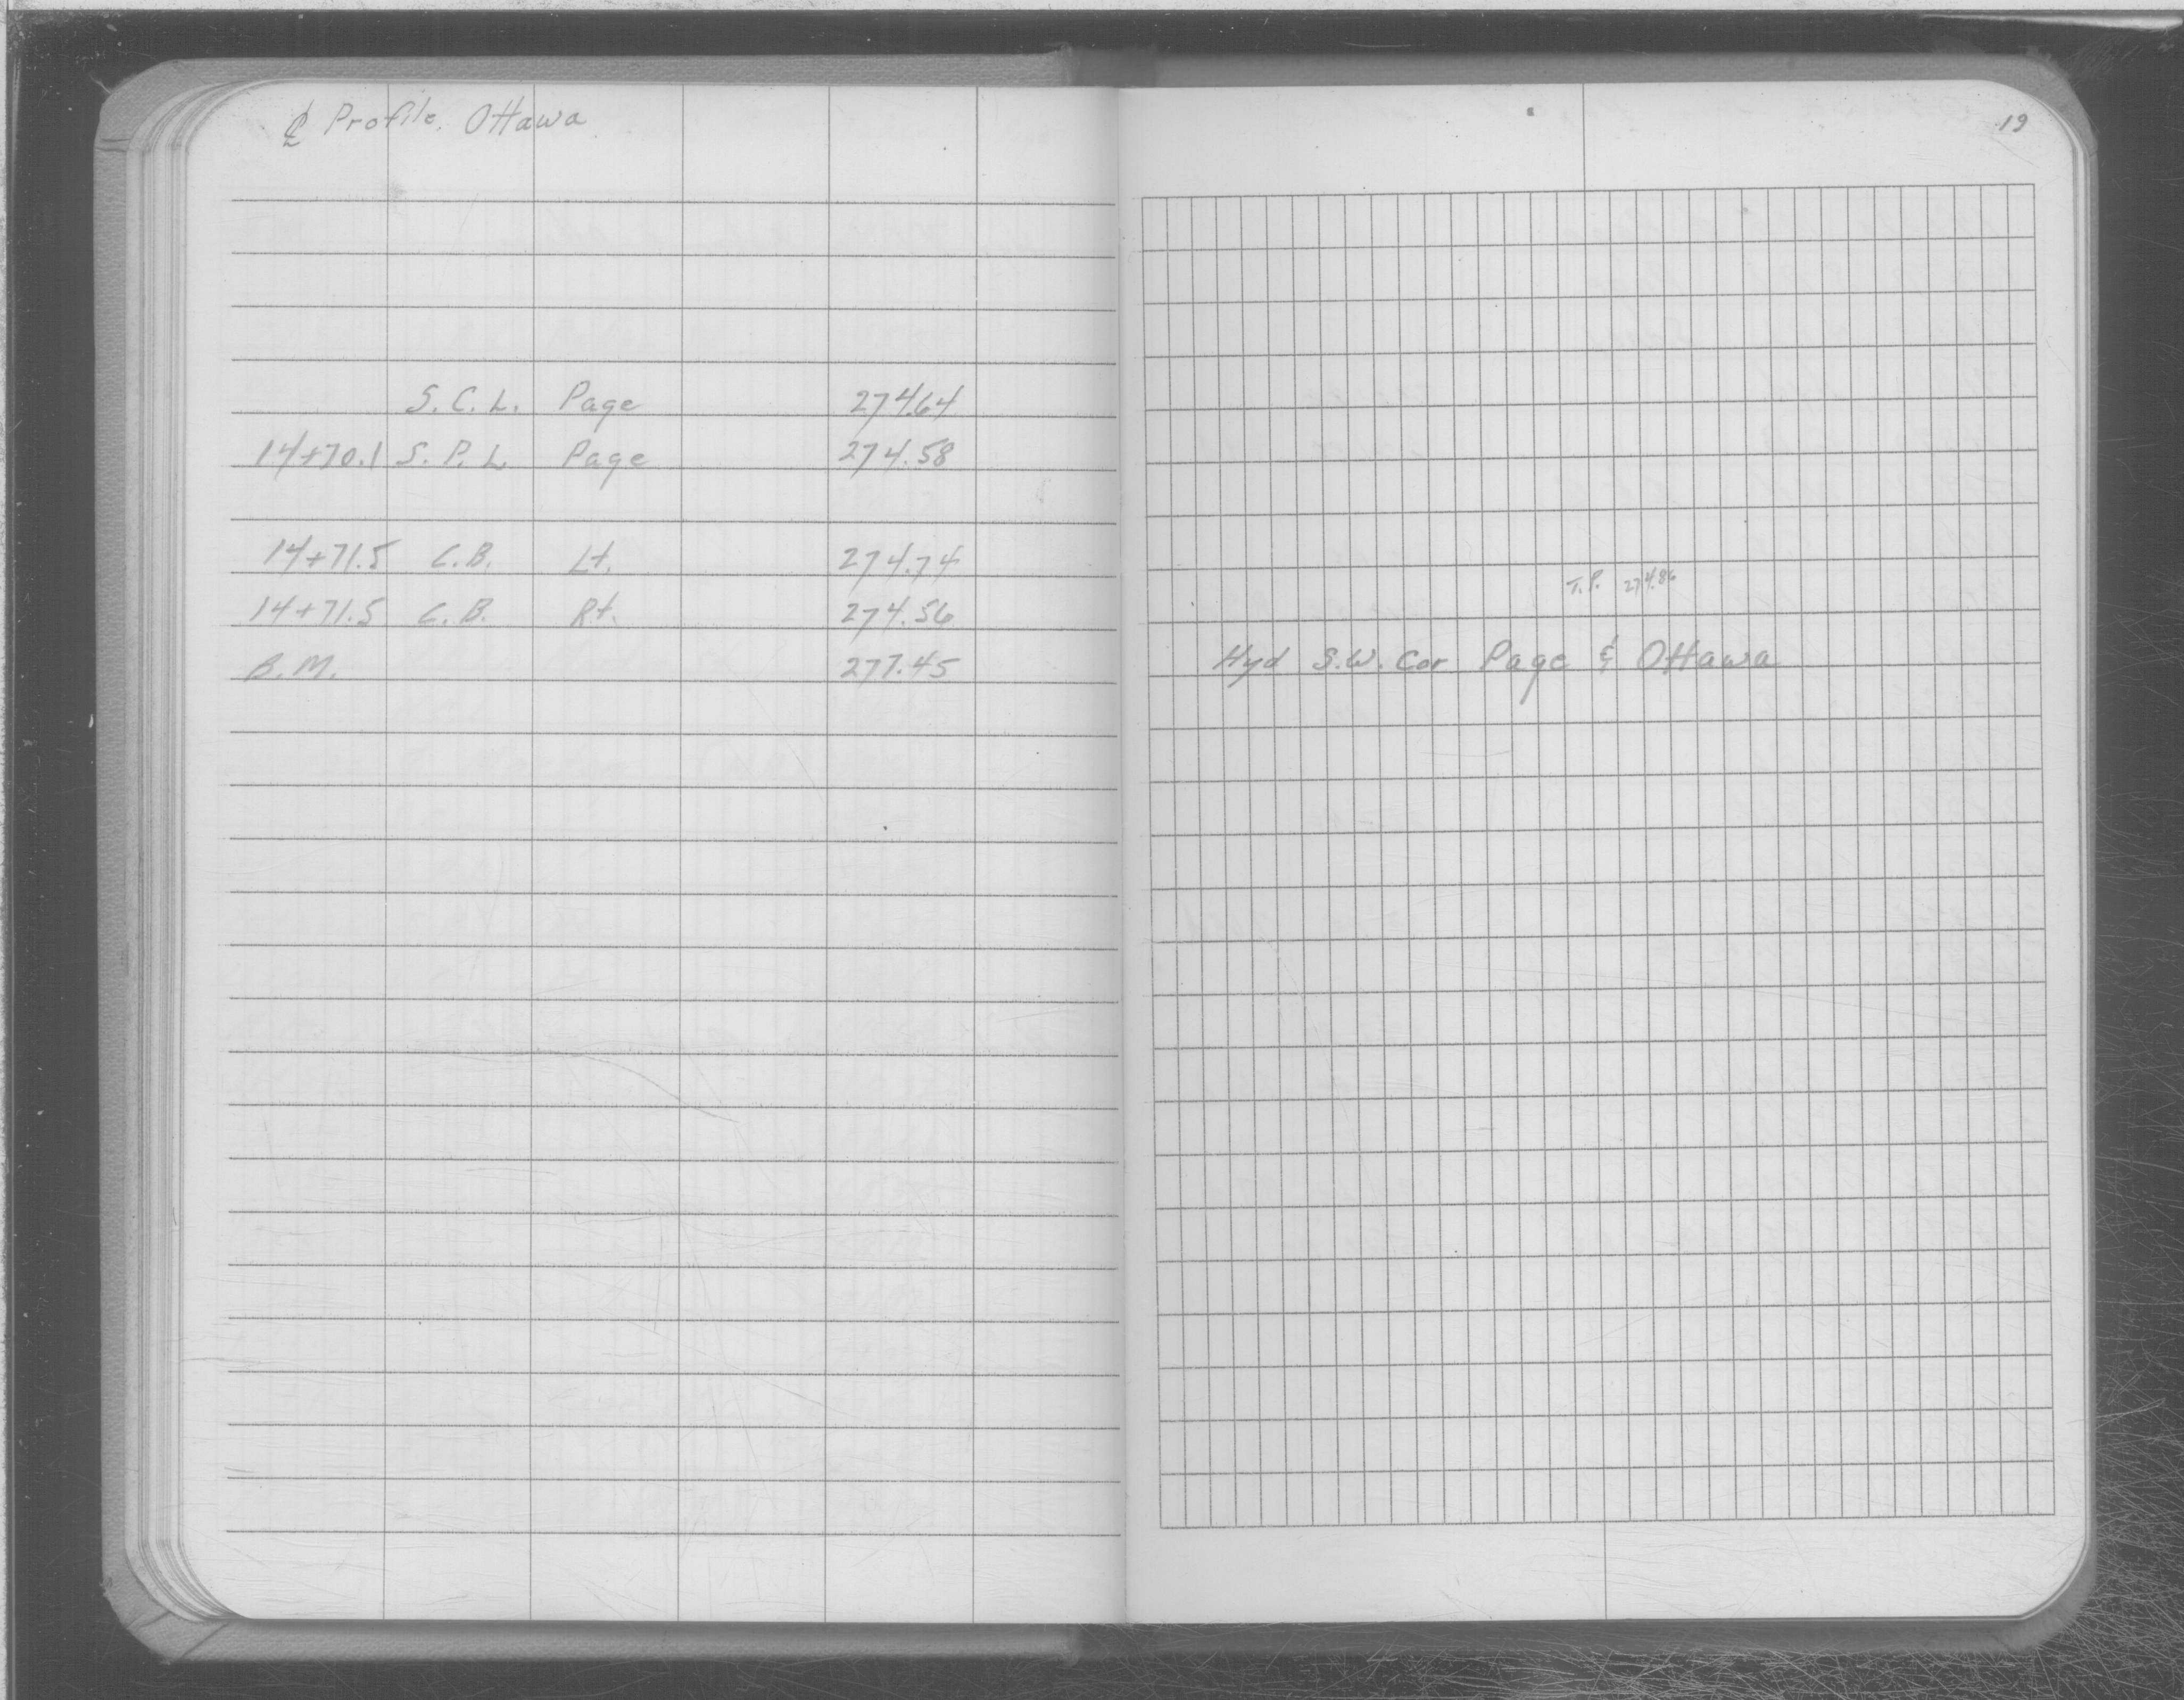 ℄ Profile, Ottawa
19
S.C.L. Page 274.64
14+70.1 S.P.L Page 274.58
14+71.5 C.B. Lt. 274.74
T.P. 274.86
14+71.5 C.B. Rt. 274.56
B.M. 277.45 Hyd S.W. Cor Page & Ottawa